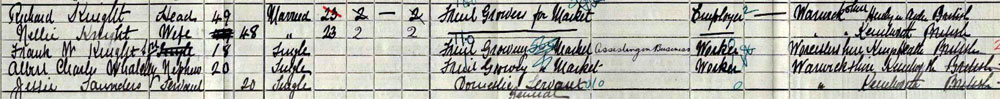 Richard Knight Head 49 Married 23 2 — 2 Fruit Growers for Market Employer Warwickshire Henley in Arden British
Nellie Knight Wife 48 " 23 2 2 " Kenilworth British
Frank W Knight Son 18 Single Fruit Growing Market Assisting in Business Worker Worcestershire British
Albert Charles Nephew 20 Single Fruit Growing Market Worker Warwickshire Kenilworth British
Jessie Saunders Servant 20 Single Domestic Servant General " Kenilworth British